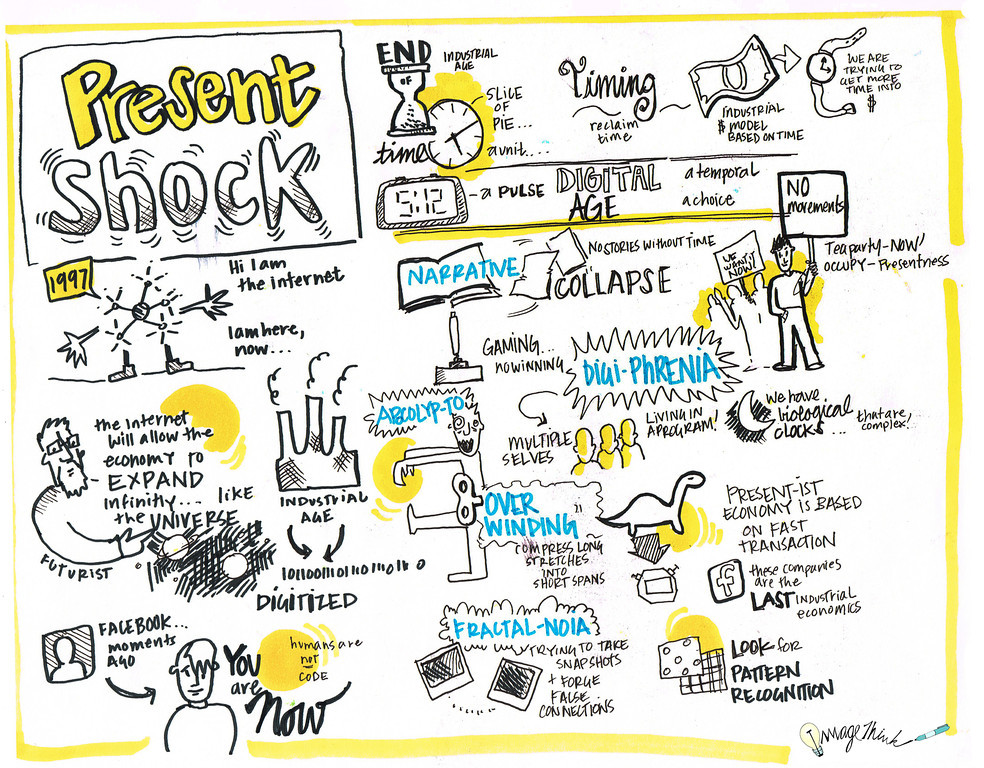 Present
Shock
1997
Hi I am
the internet
I am here,
now...
the internet
will allow the
economy to
EXPAND
infinitly.... like
the UNIVERSE
FUTURIST
INDUSTRIAL
AGE
DIGITIZED
FACEBOOK...
moments
AGO
YOU
are
NOW
humans are
not
CODE
END
OF
time
INDUSTRIAL
AGE
SLICE
OF
PIE...
a unit....
Timing
reclaim
time
INDUSTRIAL
$ MODEL
BASED ON TIME
WE ARE
TRYING TO
GET MORE
TIME INTO
$
5:12
-a PULSE
DIGITAL
AGE
a temporal
a choice
NO
movements
Teaparty-NOW!
OCCUPY-Presentness
WE
WANT IT
NOW!
NARRATIVE
COLLAPSE
NO STORIES WITHOUT TIME
GAMING...
no winning
DIGI-PHRENIA
MULTIPLE
SELVES
LIVING IN
A PROGRAM!
We have
biological
clocks...
that are,
complex!..
ABCOLYP-TO
OVER
WINDING
COMPRESS LONG
STRETCHES
INTO
SHORT SPANS
PRESENT-IST
ECONOMY IS BASED
ON FAST
TRANSACTION
f
these companies
are the
LAST industrial
economics
FRACTAL-NOIA
TRYING TO TAKE
SNAPSHOTS
+ FORGE
FALSE
CONNECTIONS
LOOK for
PATTERN
RECOGNITION
ImageThink